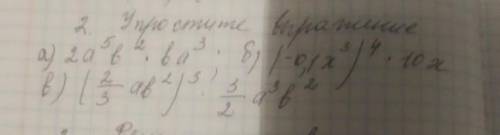 2. Упростите выражение
а) 2a⁵b² · ba³ · б) (-0,1x³)⁴ · 10x
в) (2/3 ab²)³ · 3/2 a³b²